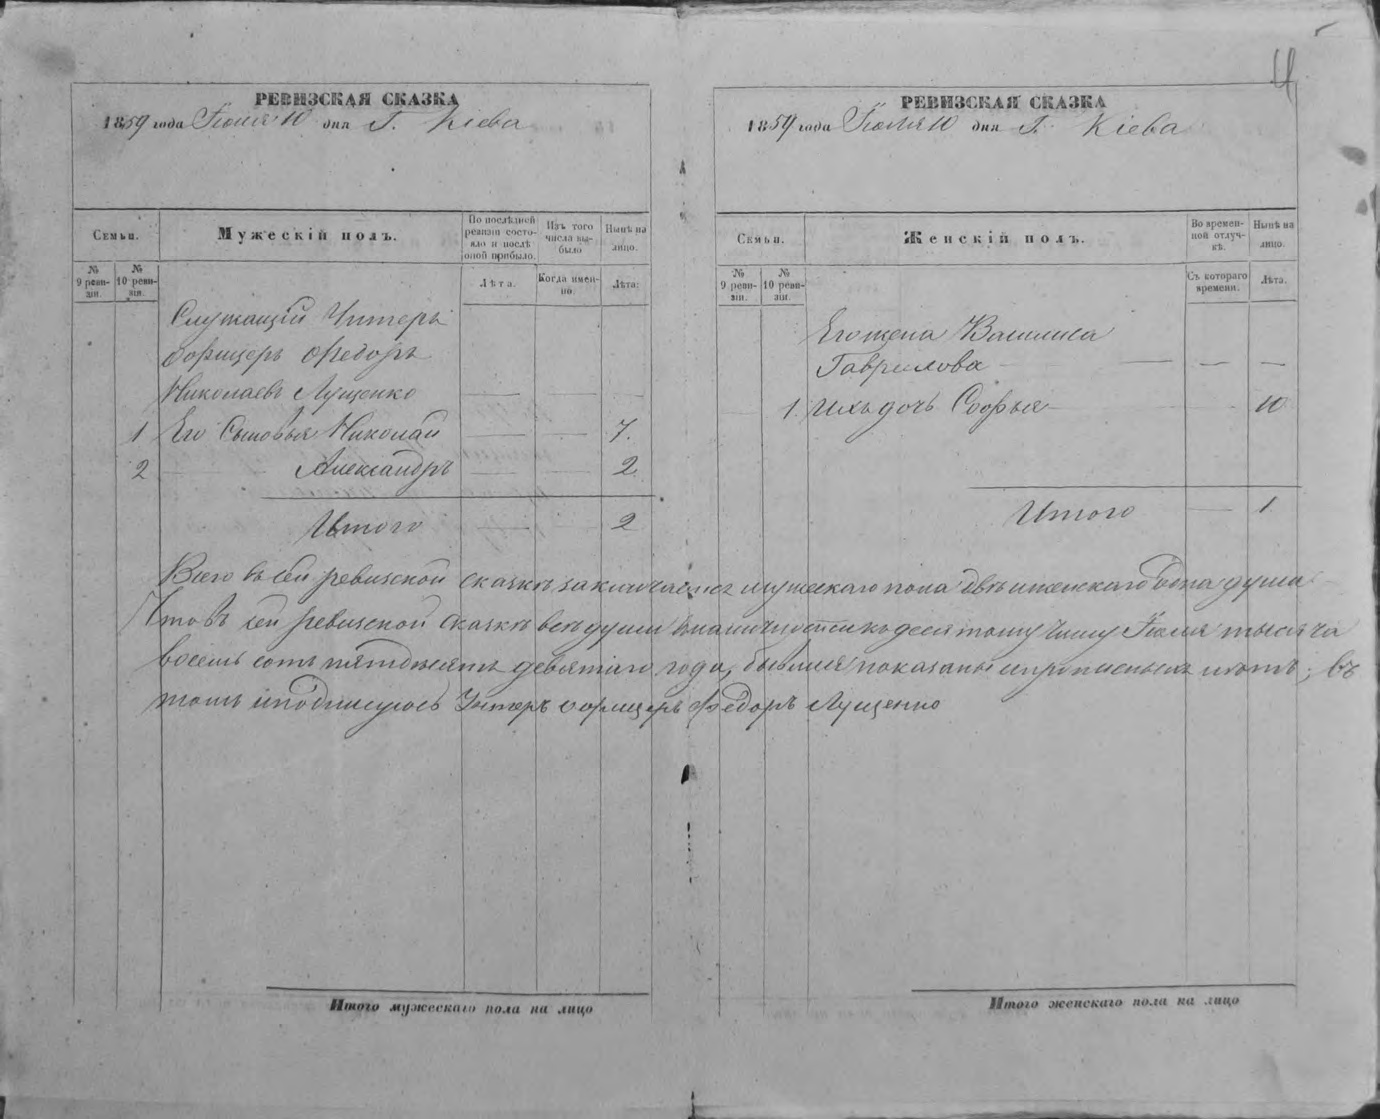 РЕВИЗСКАЯ СКАЗКА
1859 года Іюля 10 дня Г. Кіева
Семьи.
Мужескій полъ.
По послѣдней ревизіи состояло и послѣ оной прибыло.
Изъ того числа выбыло
Нынѣ на лицо.
№ 9 ревизіи.
№ 10 ревизіи.
Лѣта.
Когда именно.
Лѣта.
Служащій Унтеръ
офицеръ Федоръ
Николаевъ Лущенко
1 Его Сыновья Николай 7.
2 Александръ 2
Итого 2
РЕВИЗСКАЯ СКАЗКА
1859 года Іюля 10 дня Г. Кіева
Семьи.
Женскій полъ.
Во временной отлучкѣ.
Нынѣ на лицо.
№ 9 ревизіи.
№ 10 ревизіи.
Съ котораго времени.
Лѣта.
Его жена Василиса
Гаврилова
1 Ихъ дочь Софья 10
Итого 1
Всего въ сей ревизской сказкѣ заключается мужескаго пола двѣ и женскаго одна душа
Что въ сей ревизской сказкѣ всѣ души въ наличности къ десятому числу Іюля тысяча
восемь сотъ пятдесятъ девятаго года, бывшія показаны и прописныхъ нѣтъ; въ
томъ и подписуюсь Унтеръ офицеръ Федоръ Лущенко
Итого мужескаго пола на лицо
Итого женскаго пола на лицо